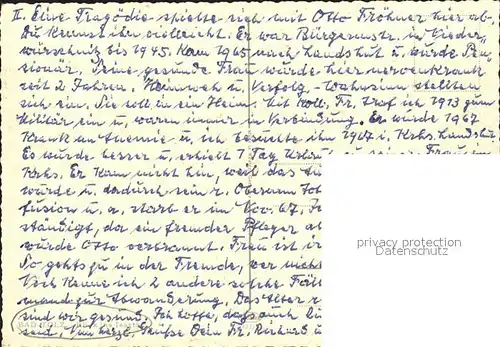 II. Eine Tragödie spielte sich mit Otto Fröhner hier ab.
Du kennst ihn vielleicht. Er war Bürgermstr. in Nieder-
würschnitz bis 1945. Kam 1965 nach Landshut u. wurde Pen-
sionär. Seine gesunde Frau wurde hier nervenkrank
seit 2 Jahren. Heimweh u. Verfolg.-Wahnsinn stellten
sich ein. Sie soll in ein Heim. Mit Koll. Fr. traf ich 1913 zum
Militär ein u. waren immer in Verbindung. Er wurde 1967
krank an Anemie u. ich besuchte ihn 1967 i. Krhs. Landshut
Es wurde besser u. erhielt 1 Tag Urlaub
Krhs. Er kam nicht hin, weil das
wurde u. dadurch sein r. Oberarm
fusion u. a. starb er im Nov. 67.
ständigt, da ein fremder Pfleger
wurde Otto verbrannt. Frau ist
So gehts zu in der Fremde, wer nicht
Noch kenne ich 2 andere solche
mand zur Abwanderung. Das Alter
sind wir gesund. Ich hoffe, dass auch
seid. Nun herzl. Grüße Dein Fr. Richard
privacy protection
Datenschutz